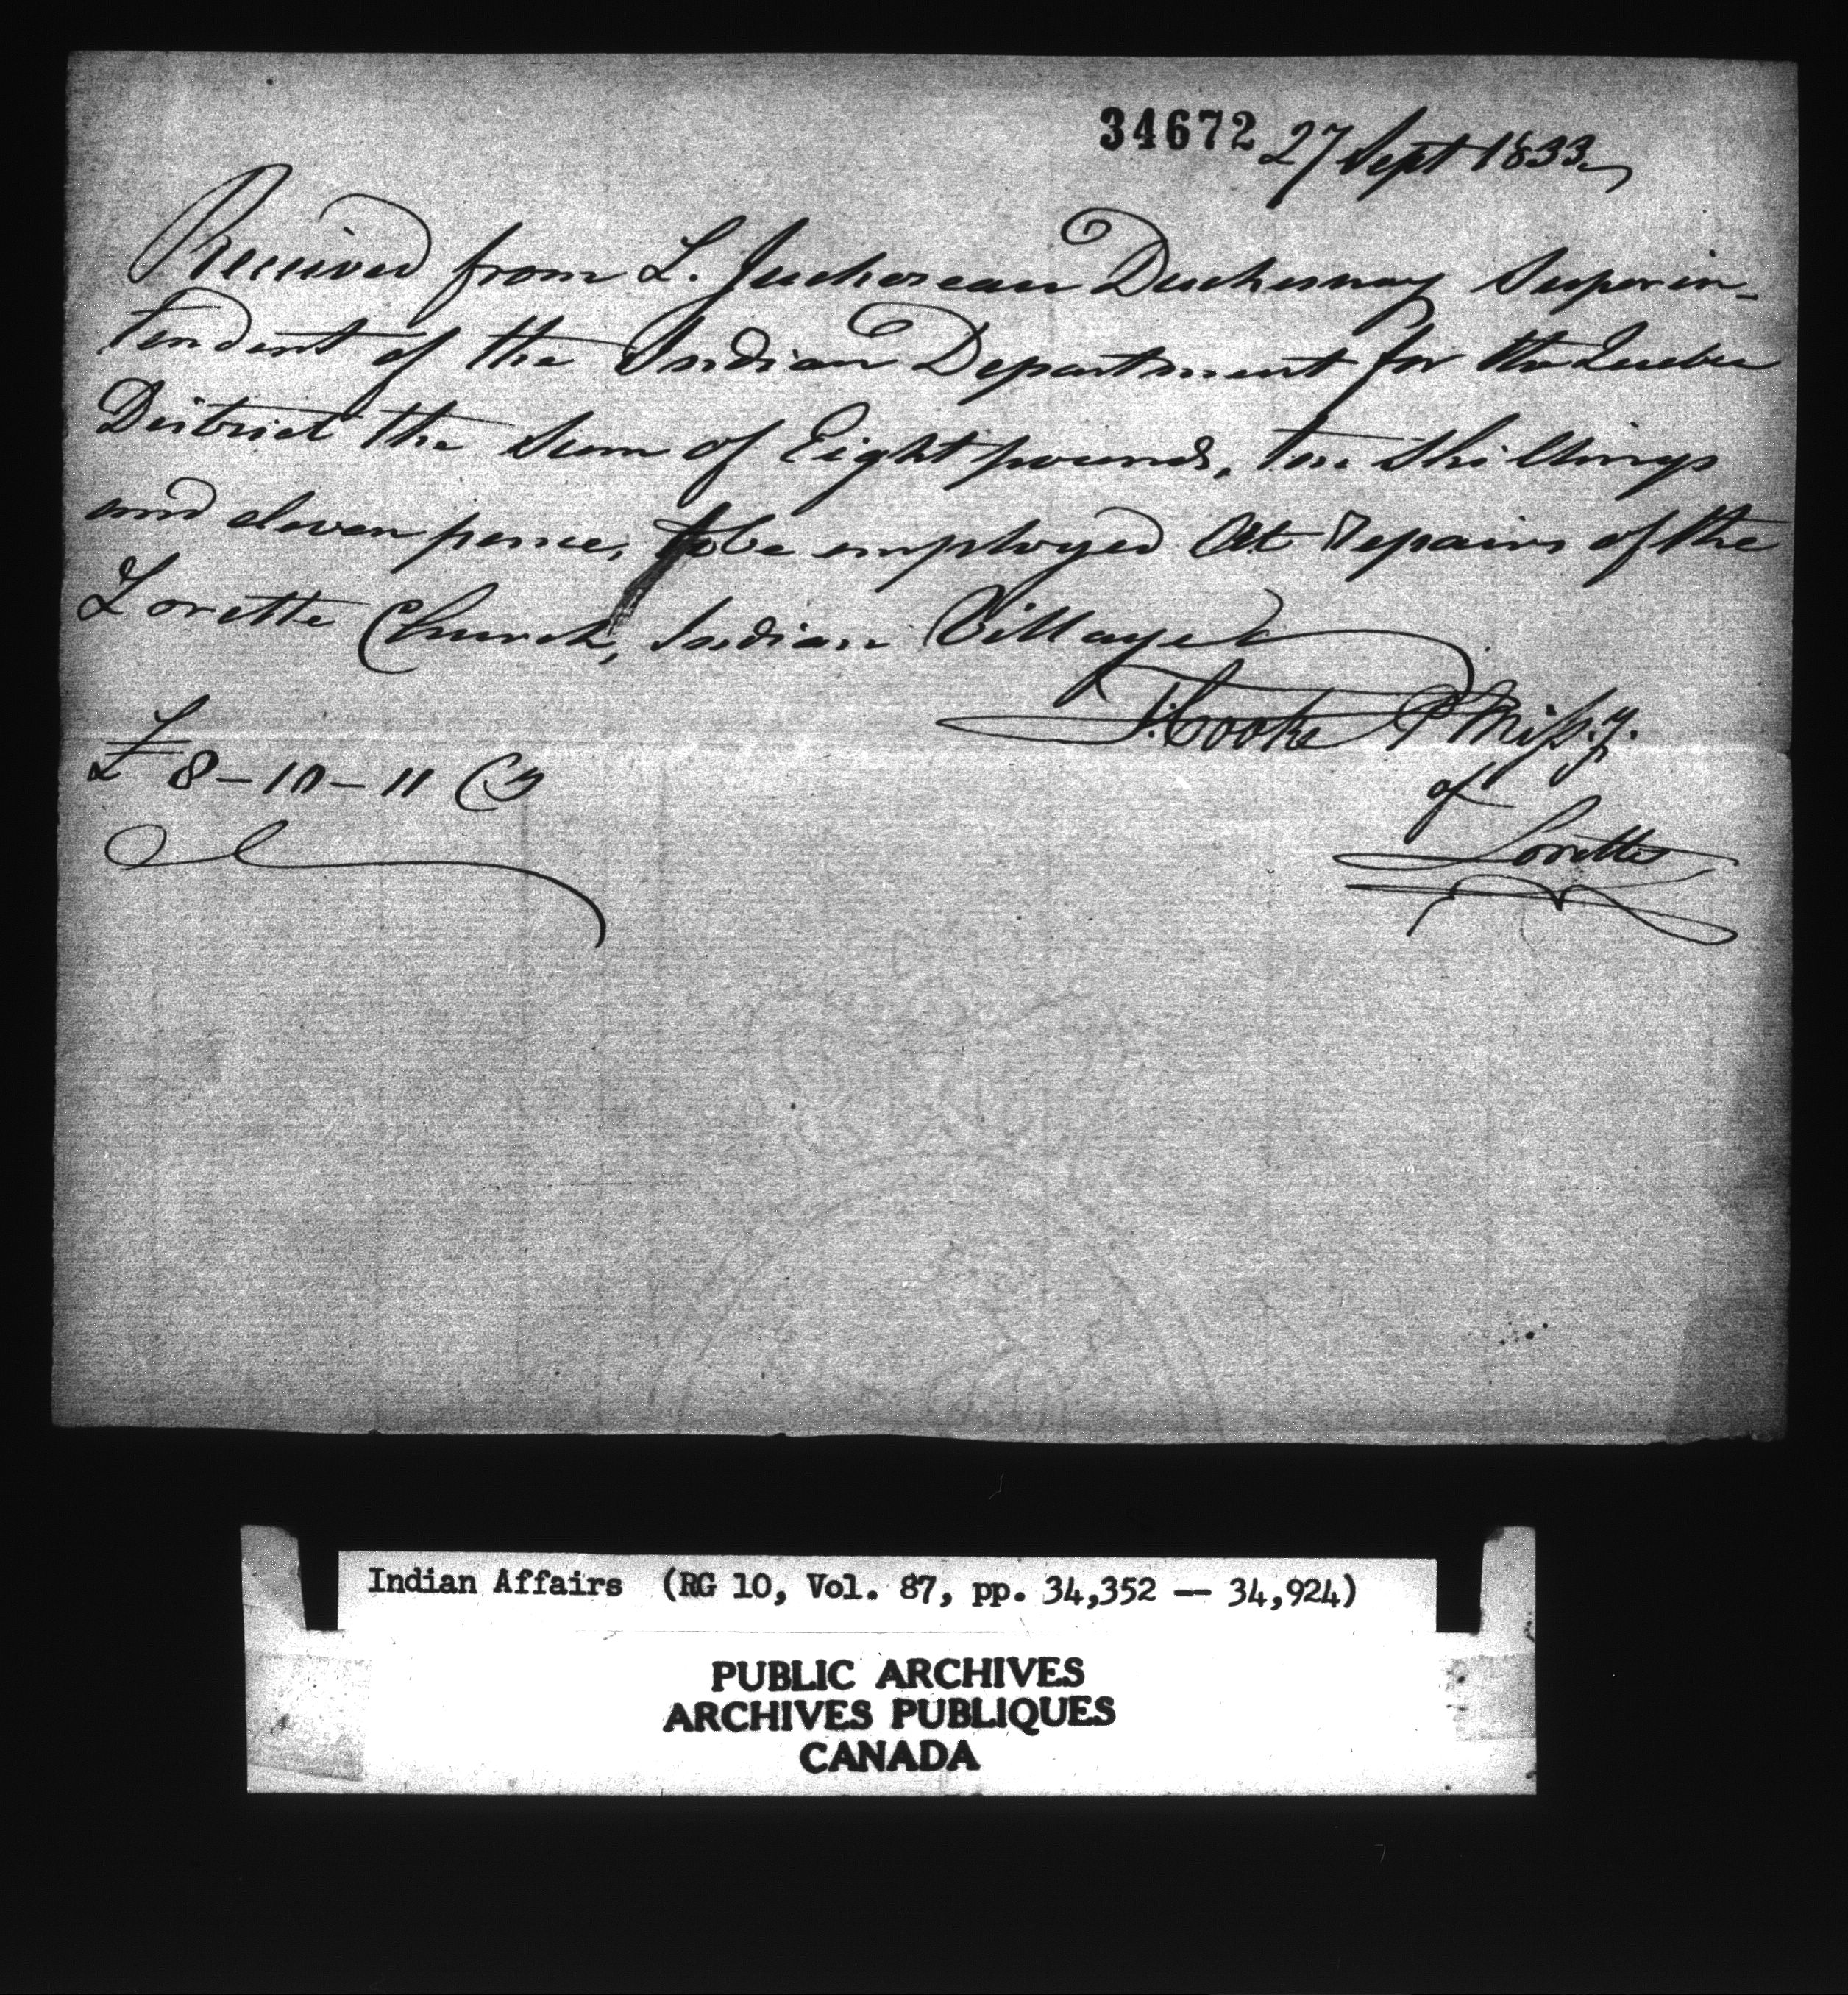 34672 27 Sept 1833
Received from L. Juchereau Duchesnay Superin-
tendent of the Indian Department for the Quebec
District the Sum of Eight pounds, ten shillings
and eleven pence, to be employed at repairs of the
Lorette Church, Indian Village
T. Cooke P Miss.y.
£ 8-10-11 Cy
of
Lorette
Indian Affairs (RG 10, Vol. 87, pp. 34,352 — 34,924)
PUBLIC ARCHIVES
ARCHIVES PUBLIQUES
CANADA